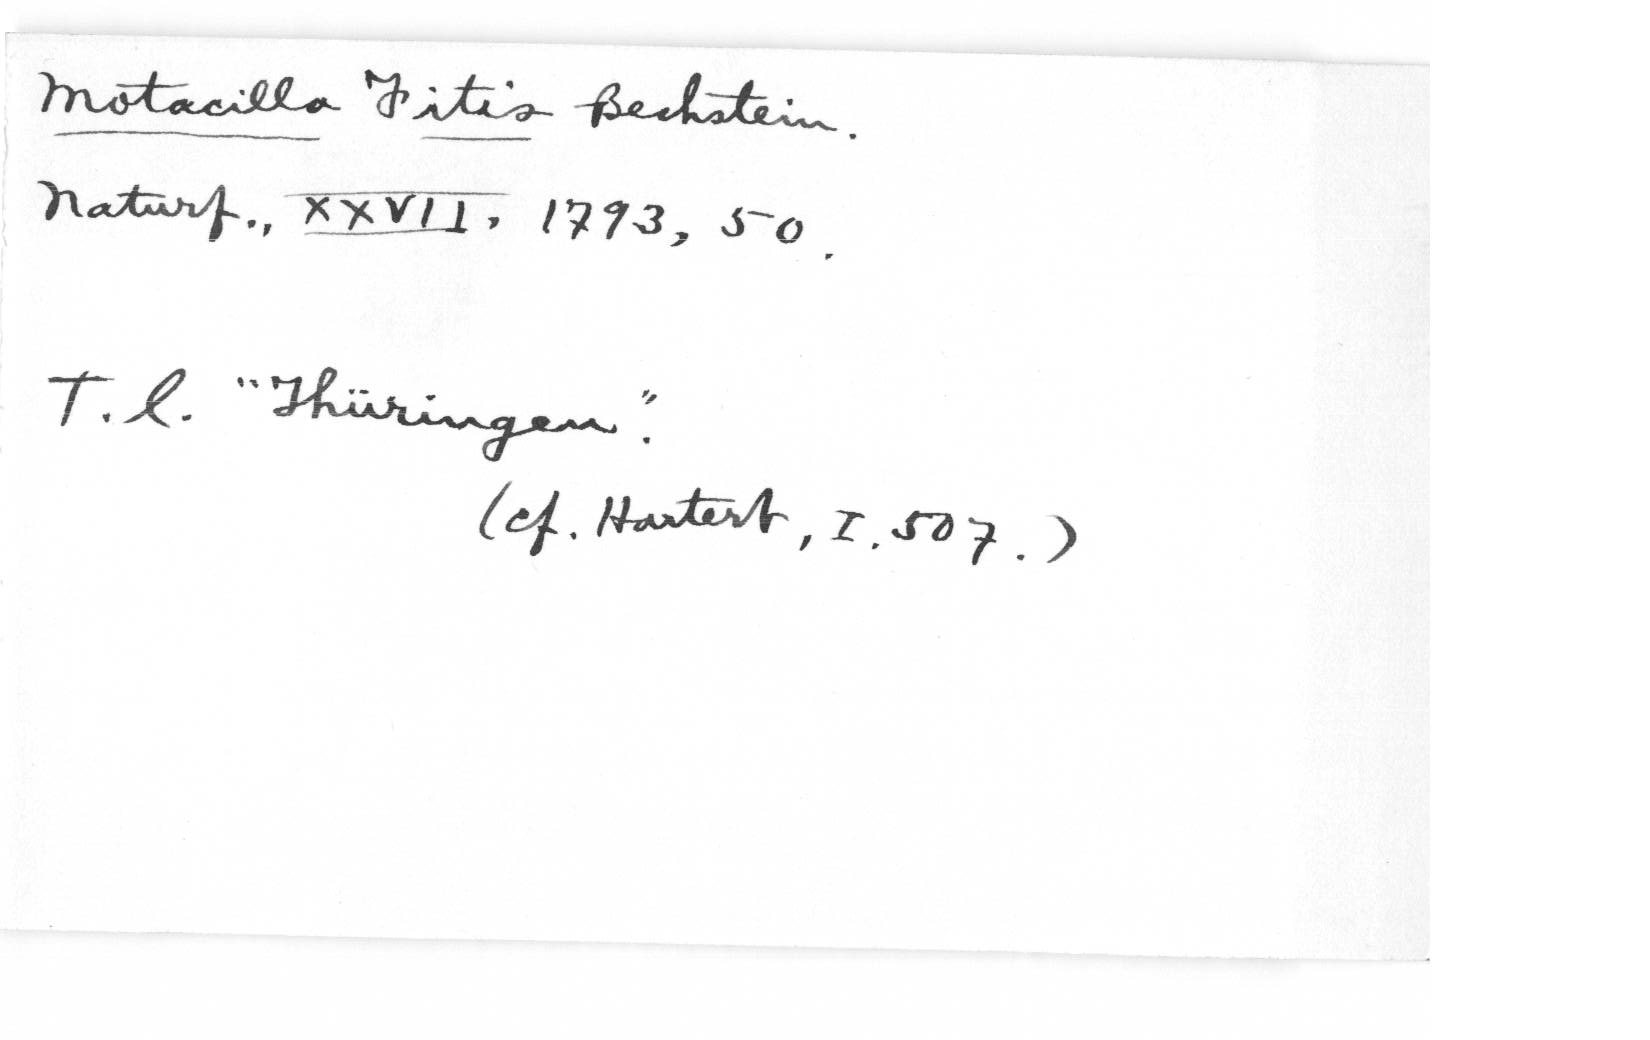 Motacilla Fitis Bechstein.
Naturf., XXVII, 1793, 50.
T. l. "Thüringen".
(cf. Hartert, I. 507.)